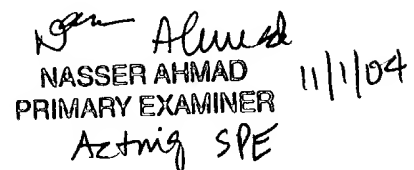 Nasser Ahmad
NASSER AHMAD 11/1/04
PRIMARY EXAMINER
Acting SPE